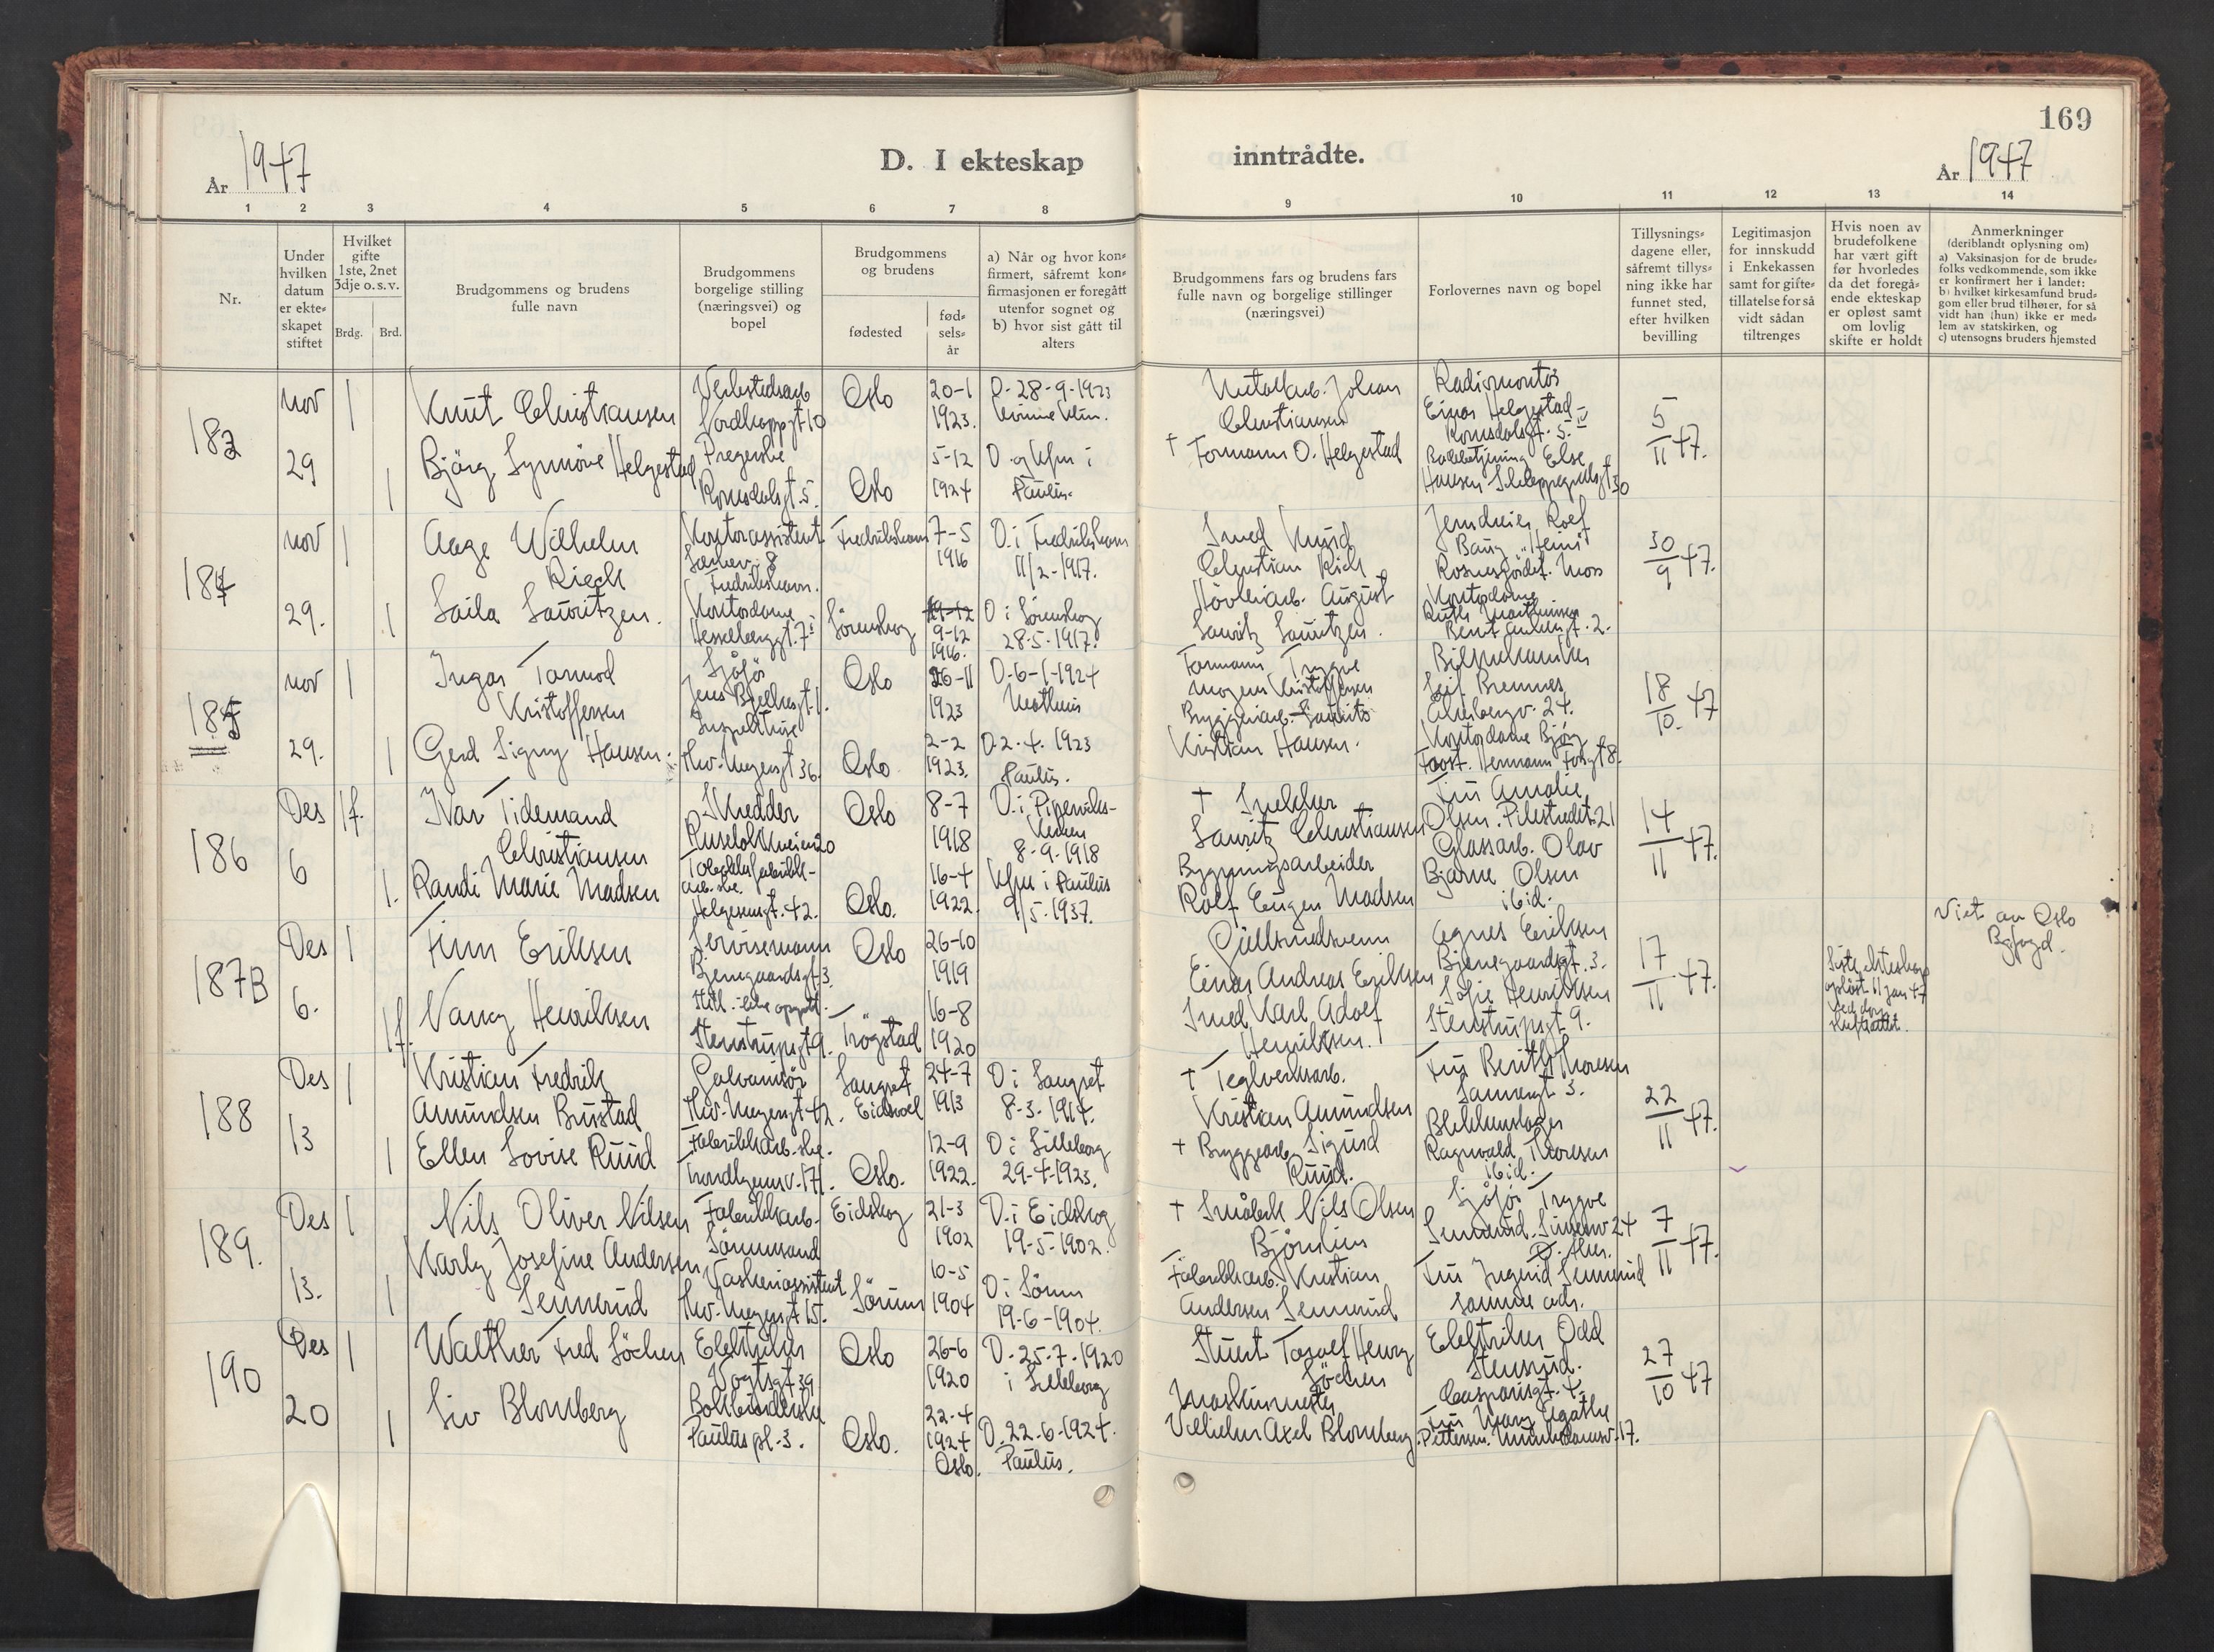 169
År 1947
D. I ekteskap inntrådte.
År 1947
1 2 3 4 5 6 7 8 9 10 11 12 13 14
Nr.
Under
hvilken
datum
er ekte-
skapet
stiftet
Hvilket
gifte
1ste, 2net
3dje o. s. v.
Brdg. Brd.
Brudgommens og brudens
fulle navn
Brudgommens
borgelige stilling
(næringsvei) og
bopel
Brudgommens
og brudens
fødested
fød-
sels-
år
a) Når og hvor kon-
firmert, såfremt kon-
firmasjonen er foregått
utenfor sognet og
b) hvor sist gått til
alters
Brudgommens fars og brudens fars
fulle navn og borgelige stillinger
(næringsvei)
Forlovernes navn og bopel
Tillysnings-
dagene eller,
såfremt tillys-
ning ikke har
funnet sted,
efter hvilken
bevilling
Legitimasjon
for innskudd
i Enkekassen
samt for gifte-
tillatelse for så
vidt sådan
tiltrenges
Hvis noen av
brudefolkene
har vært gift
før hvorledes
da det foregå-
ende ekteskap
er opløst samt
om lovlig
skifte er holdt
Anmerkninger
(deriblandt oplysning om)
a) Vaksinasjon for de brude-
folks vedkommende, som ikke
er konfirmert her i landet:
b) hvilket kirkesamfund brud-
gom eller brud tilhører, for så
vidt han (hun) ikke er med-
lem av statskirken, og
c) utensogns bruders hjemsted
183
nov
29
1
1
Knut Christiansen
Bjørg Synnøve Helgestad
Verkstedsarb
Nordkappgt 10
Romsdalsgt. 5.
Oslo
Oslo
20-1
1923.
5-12
1924
D. 28-9-1923
D. og kfm i
Paulus.
Johan
Christiansen
† Formann O. Helgestad
Radiomontør
Einar Helgestad
Romsdalsgt. 5. II
Else
Hansen Schleppegrellsgt 30
5/11 47.
184
nov
29.
1
1
Aage Wilhelm
Riech
Laila Lauritzen.
Kontorassistent
Fredrikshavn.
Kontordame
Hesselbergsgt. 7
Fredrikshavn
Sörenskog
7-5
1916
9-12
1916.
D. i Fredrikshavn
11/2-1917.
D i Sörenskog
28-5-1917.
Smed Knud
Christian Rich
Høvleriarb. August
Lauritz Lauritzen.
Rolf
Moss
Kontordame
Ruth Marthinsen
Bernt Ankersgt. 2.
30/9 47.
185
nov
29.
1
1
Ingar Tormod
Kristoffersen
Gerd Signy Hansen.
Sjåfør
Jens Bjelkesgt 1.
Thv. Meyersgt 36.
Oslo
Oslo
26-11
1923
2-2
1923.
D. 6-1-1924
Matheus
D 2. 4. 1923
Paulus.
Formann Trygve
Mogens Kristoffersen
Bryggeriarb. Lauritz
Kristian Hansen.
Bilmekaniker
Leif Bremnes
Ekebergv. 24.
Kontordame Bjørg
Hermann Fossgt 8.
18/10. 47
186
Des
6
1f.
1.
Ivar Tidemand
Christiansen
Randi Marie Madsen
Skredder
Ruseløkkveien 20
Tobakksfabrikk-
arb.ske.
Helgesensgt. 42.
Oslo
Oslo.
8-7
1918
16-4
1922.
D. i Pipervika-
kirken
8-9-1918
Kfm i Paulus
9/5-1937.
† Snekker
Lauritz Christiansen
Bygningsarbeider
Rolf Eugen Madsen
Fru Amalie
Olsen. Pilestredet. 21
Glassarb. Olav
Bjarne Olsen
ibid.
14/11 47.
187B
Des
6.
1
1f.
Finn Eriksen
Nancy Henriksen
Servisemann
Bjerregaardsgt 3.
Still. ikke oppgitt.
Stenstrupsgt 9.
Oslo
Trögstad
26-10
1919
16-8
1920
Gjellsmedsvenn
Einar Andreas Eriksen
Smed Karl Adolf
Henriksen.
Agnes Eriksen
Bjerregaardsgt. 3.
Sofie Henriksen
Stenstrupsgt 9.
17/11 47.
Siste ekteskap
oppløst 11 jan 47
ved dom
skifterettet.
Viet av Oslo
Byfogd.
188
Des
13
1
1
Kristian Fredrik
Amundsen Bustad
Ellen Lovise Ruud
Galvanisør
Thv. Meyersgt 42.
Fabrikkarb.ske.
Trondhjemsv. 171.
Langset
Eidsvoll
Oslo.
24-7
1913
12-9
1922.
D i Langset
8-3-1914.
D i Lilleborg
29-4-1923.
† Teglverksarb.
Kristian Amundsen
† Bryggearb. Sigurd
Ruud.
Fru Berith Thoresen
Sannergt 3.
Blikkenslager
Ragnvald Thoresen
ibid.
22/11 47.
189.
Des
13.
1
1
Nils Oliver Nilsen
Karly Josefine Andersen
Sennerud
Fabrikkarb.
Sörumsand
Vaskeriassistent
Thv. Meyersgt 15.
Eidskog
Sörum
21-3
1902
10-5
1904
D. i Eidskog
19-5-1902.
D i Sörum
19-6-1904.
† Småbruk Nils Olsen
Björnlien
Fabrikkarb. Kristian
Andersen Sennerud
Sjåfør Trygve
Sennerud.
Fru Ingerid Sennerud
samme adr.
7/11 47.
190
Des
20
1
1
Walther Fred Löchen
Siv Blomberg
Elektriker
Vogtsgt 39
Bokbinderske
Paulus pl. 3.
Oslo
Oslo.
26-6
1920
22-4
1924
Oslo.
D. 25-7-1920
i Lilleborg
D. 22-6-1924.
Paulus.
Henry
Löchen
Maskinmester
Vilhelm Axel Blomberg.
Elektriker Odd
Stensrud.
Casparisgt. 4.
Fru Mary Agathe
Pettersen. 17.
27/10 47